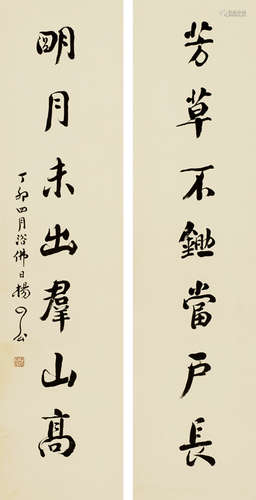 芳草不鋤當戶長
明月未出羣山高
丁卯四月浴佛日楊了公